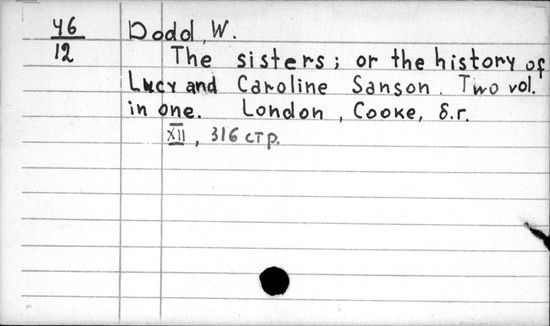 46
12
Dodd, W.
The sisters; or the history of
Lucy and Caroline Sanson. Two vol.
in one. London, Cooke, б.г.
XII, 316 стр.